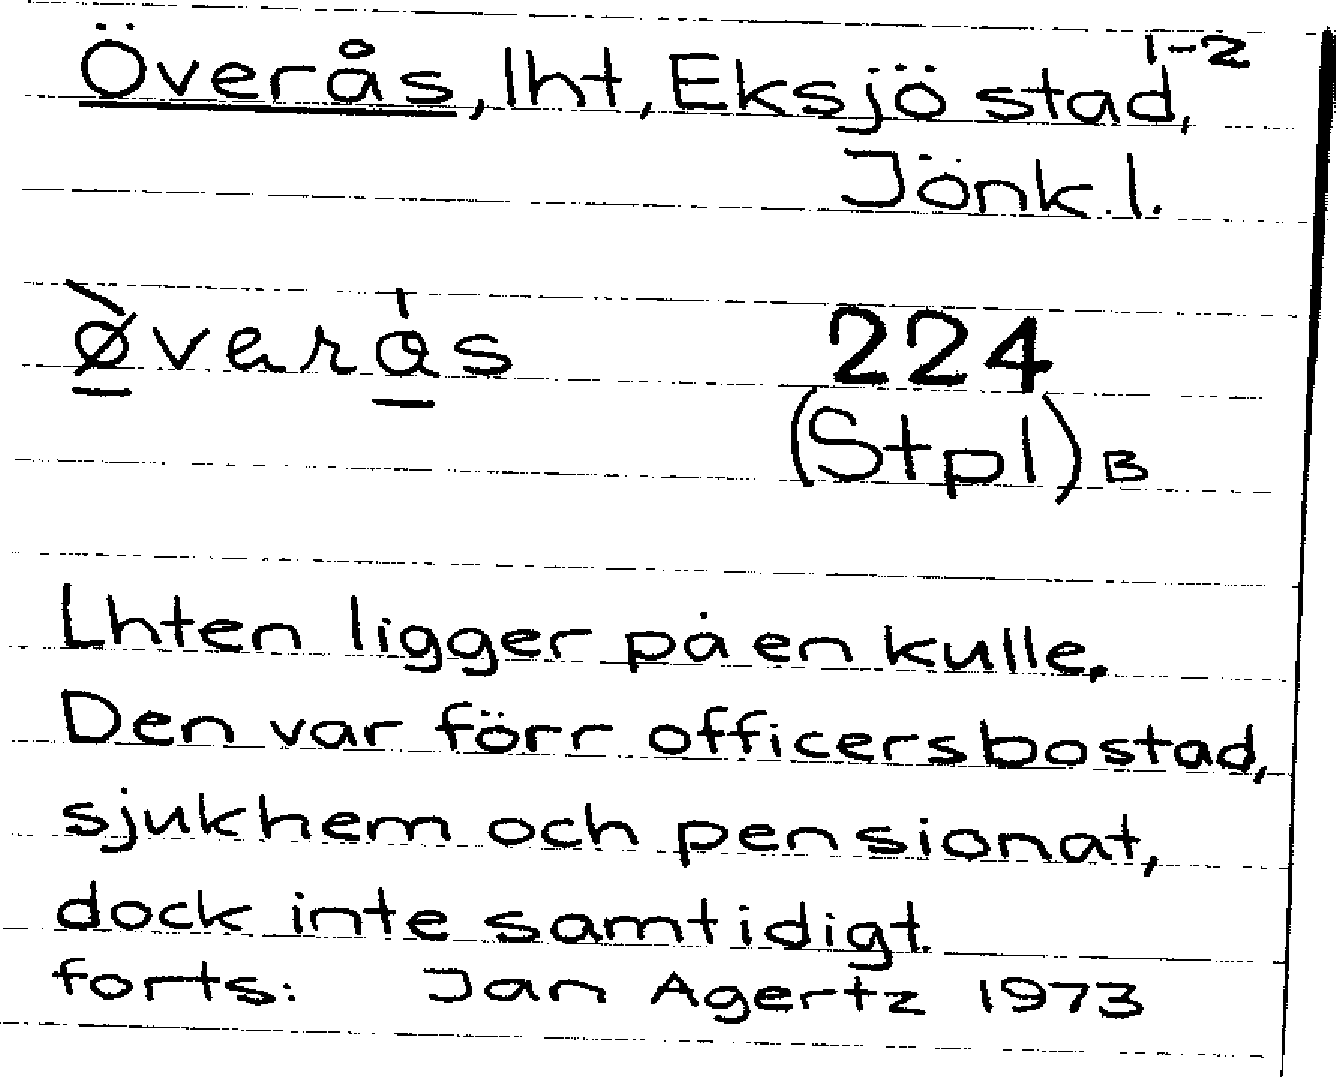 1-2
Överås, lht, Eksjö stad,
Jönk.l.
ø̀verȧs 224
(Stpl) B
Lhten ligger på en kulle.
Den var förr officersbostad,
sjukhem och pensionat,
dock inte samtidigt.
forts: Jan Agertz 1973